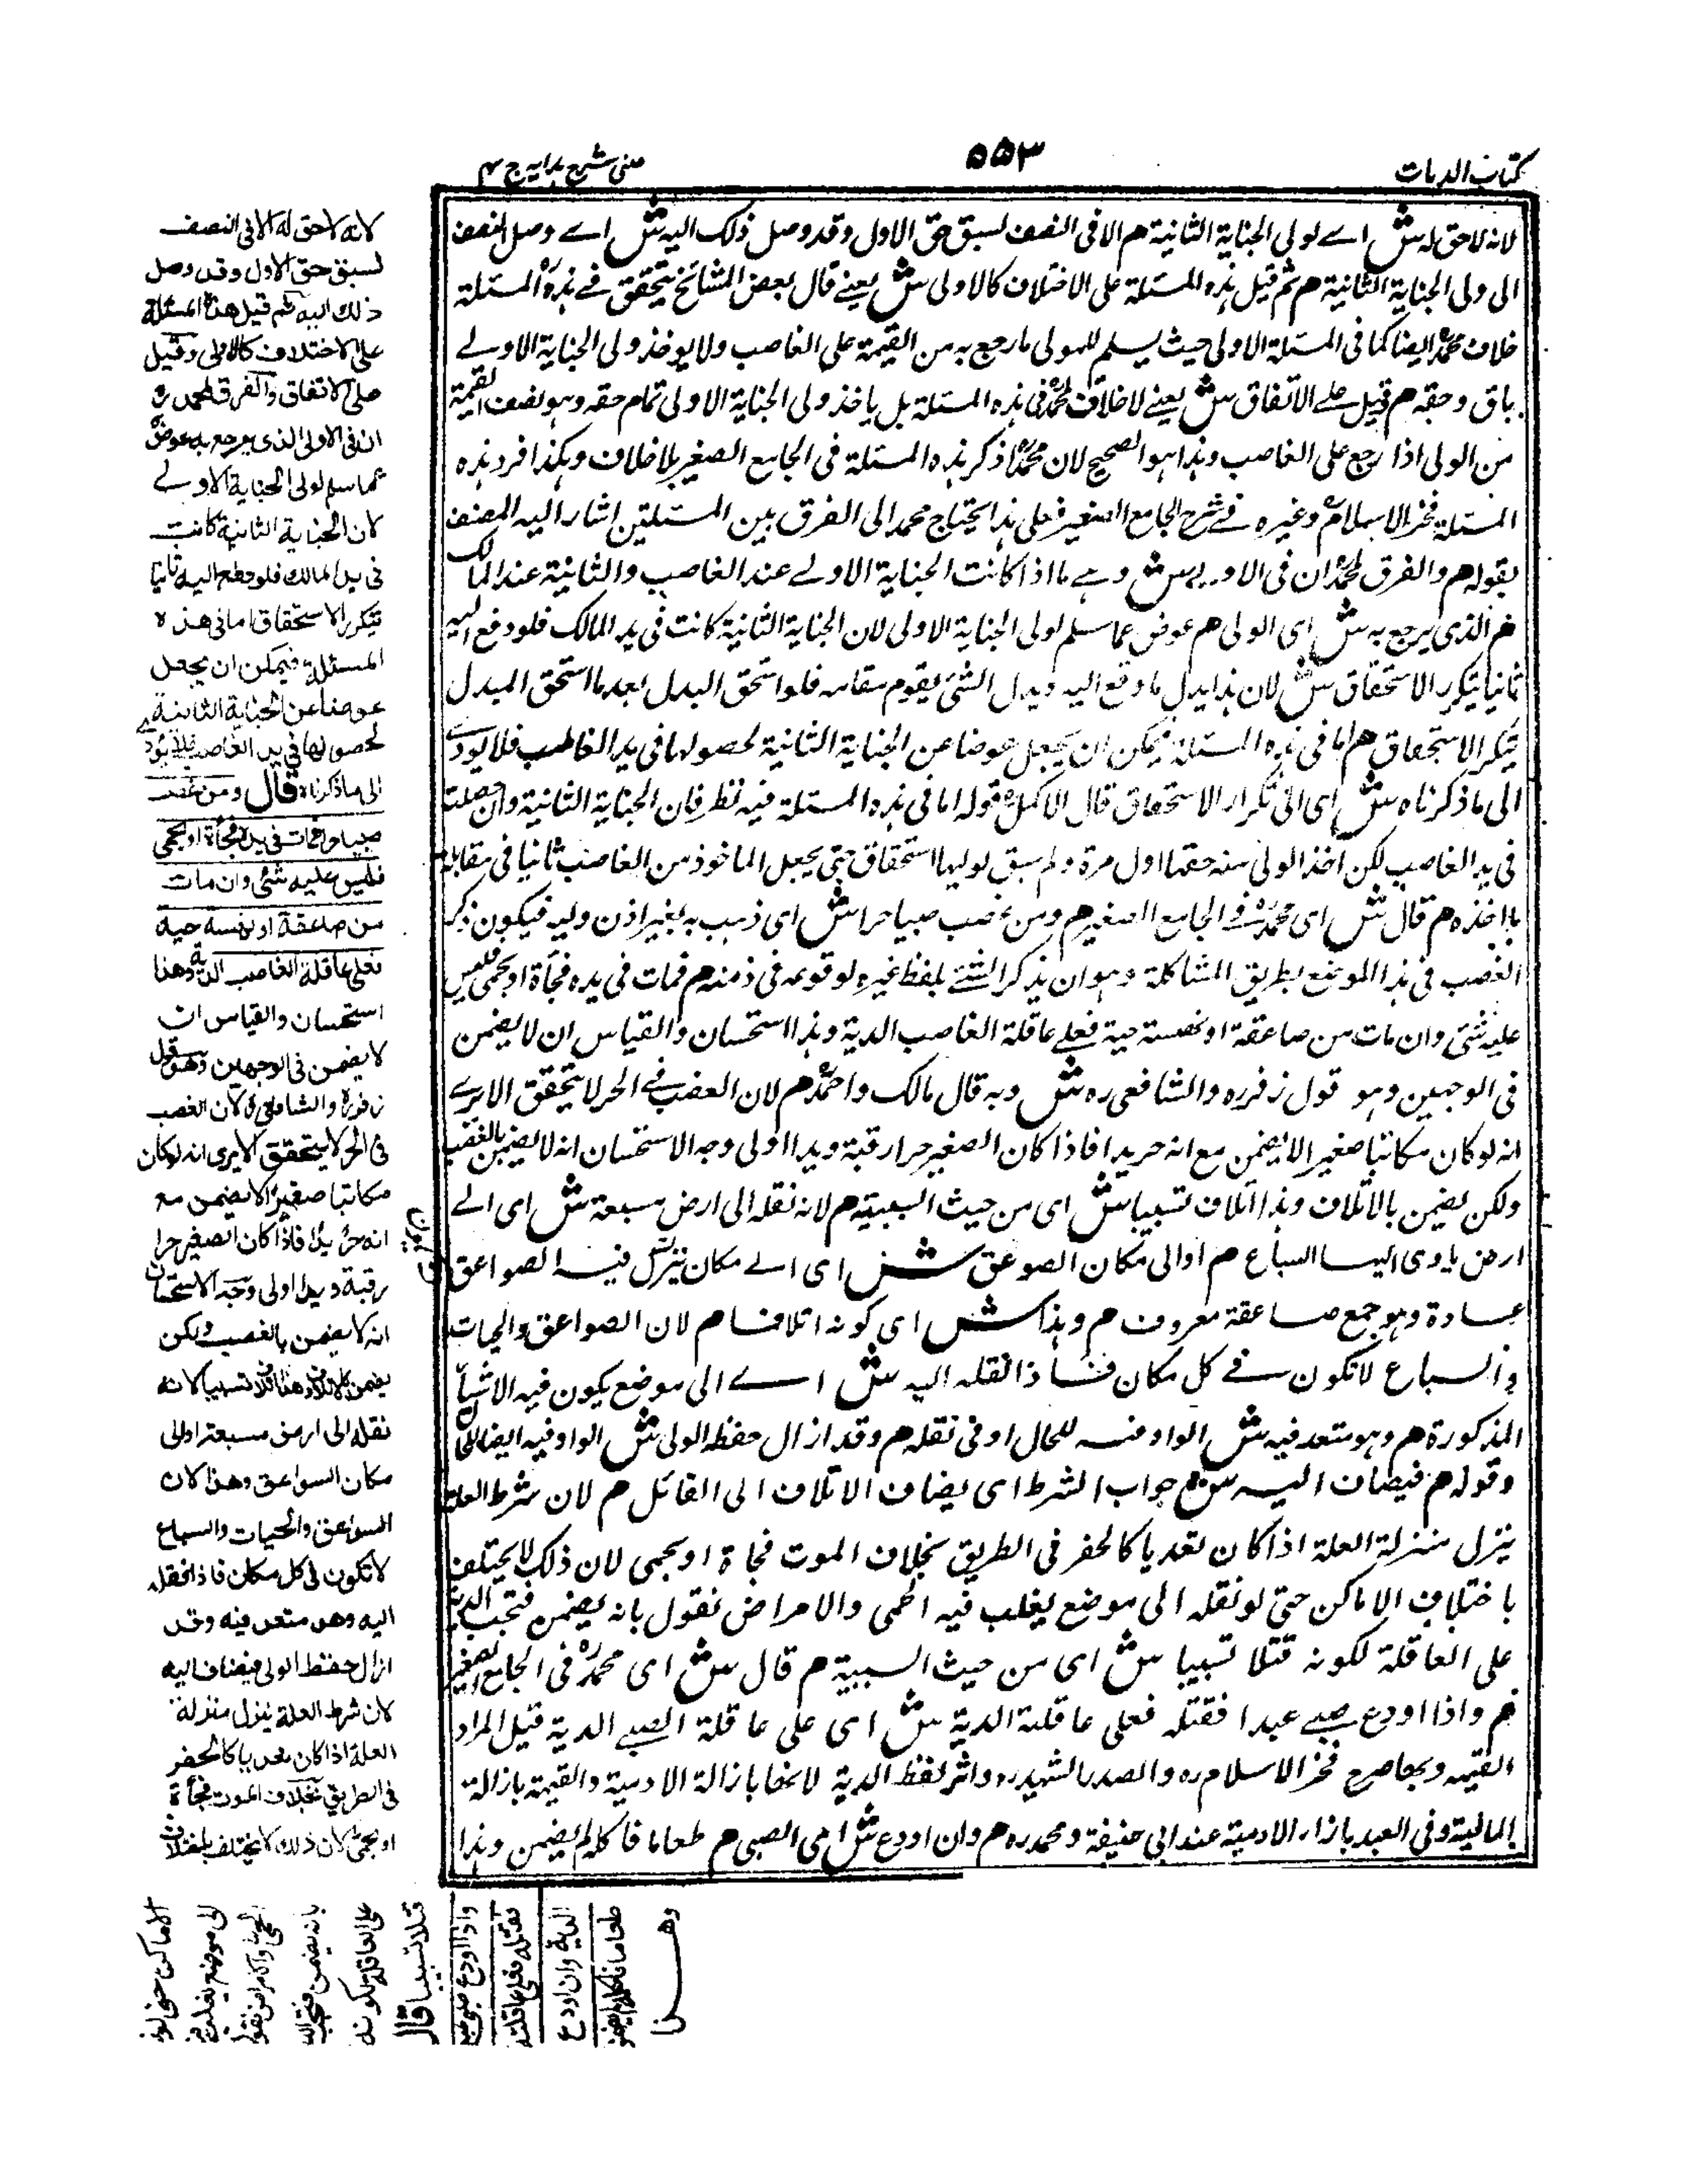 كتاب الديات
٥٥٣
عينى شرح هدايه ج ٤
لانه لا حق له ش اے لولى الجناية الثانية هم الا فى النصف لسبق حق الاول وقد وصل ذلك اليه ش اے وصل النصف
الى ولى الجناية الثانية هم ثم قيل هذه المسئلة على الاختلاف كالاولى ش يعنے قال بعض المشائخ يتحقق فے هذه المسئلة
خلاف محمدؒ ايضا كما فى المسئلة الاولى حيث يسلم للمولى ما رجع به من القيمة على الغاصب ولا يوخذ ولى الجناية الاولے
باق وحقه هم وقيل علے الاتفاق ش يعنے لا خلاف لمحمدؒ فى هذه المسئلة بل ياخذ ولى الجناية الاولى تمام حقه وهو نصف القيمة
من الولى اذا رجع على الغاصب وهذا هو الصحيح لان محمدؒا ذكر هذه المسئلة فى الجامع الصغير بلا خلاف وهكذا افرد هذه
المسئلة فخر الاسلامؒ وغيره فے شرح الجامع الصغير فعلى هذا يحتاج محمد الى الفرق بين المسئلتين اشار اليه المصنف
بقوله هم والفرق لمحمدؒ ان فى الاولے ش وهے ما اذا كانت الجناية الاولے عند الغاصب والثانية عند المالك
هم الذى يرجع به ش اى الولى هم عوض عما سلم لولى الجناية الاولى لان الجناية الثانية كانت فى يد المالك فلو دفع اليه
ثانيا يتكرر الاستحقاق ش لان هذا بدل ما دفع اليه وبدل الشئ يقوم مقامه فلو استحق البدل بعد ما استحق المبدل
يتكرر الاستحقاق هم اما فى هذه المسئلة فيمكن ان يجعل عوضا عن الجناية الثانية لحصولها فى يد الغاصب فلا يودے
الى ما ذكرناه ش اى الى تكرار الاستحقاق قال الاكملؒ قوله اما فى هذه المسئلة فيه نظر فان الجناية الثانية وان حصلت
فى يد الغاصب لكن اخذ الولى منه حقها اول مرة ولم يسبق لوليها استحقاق حتى يجعل الماخوذ من الغاصب ثانيا فى مقابلة
ما اخذه هم قال ش اى محمدؒ فے الجامع الصغير هم ومن غصب صبيا حرا ش اى ذهب به بغير اذن وليه فيكون ذكر
الغصب فى هذا الموضع بطريق المشاكلة وهو ان يذكر الشئے بلفظ غيره لوقوعه فى ذمنه هم فمات فى يده فجأة او بحمى فليس
عليه شئ وان مات من صاعقة او نهسة حية فعلے عاقلة الغاصب الدية وهذا استحسان والقياس ان لا يضمن
فى الوجهين وهو قول زفر ره والشافعى ره ش وبه قال مالك واحمدؒ هم لان الغصب فے الحر لا يتحقق الا يرے
انه لو كان مكاتبا صغيرا لا يضمن مع انه حر يدا فاذا كان الصغير حرا رقبة ويدا اولى وجه الاستحسان انه لا يضمن بالغصب
ولكن يضمن بالاتلاف وهذا اتلاف تسبيبا ش اى من حيث السببية هم لانه نقله الى ارض مسبعة ش اى الے
ارض ياوى اليها السباع هم او الى مكان الصوعق ش اى الے مكان ينزل فيه الصواعق
عادة وهو جمع صاعقة معروف هم وهذا ش اى كونه اتلافا هم لان الصواعق والحيات
والسباع لا تكون فے كل مكان فاذا نقله اليه ش اے الى موضع يكون فيه الاشيأ
المذكورة هم وهو متعد فيه ش الواو فيه للحال او فى نقله هم وقد ازال حفظ الولى ش الواو فيه ايضا للحال
وقوله هم فيضاف اليه ش جواب الشرط اى يضاف الاتلاف الى القائل هم لان شرط العلة
ينزل منزلة العلة اذا كان تعديا كالحفر فى الطريق بخلاف الموت فجاة او بحمى لان ذلك لا يختلف
باختلاف الاماكن حتى لو نقله الى موضع يغلب فيه الحمى والامراض نقول بانه يضمن فتجب الدية
على العاقلة لكونه قتلا تسبيبا ش اى من حيث السببية هم قال ش اى محمدؒ فى الجامع الصغير
هم واذا اودع صبے عبدا فقتله فعلى عاقلته الدية ش اى على عاقلة الصبے الدية قيل المراد
القيمه وبها صرح فخر الاسلام ره والصدر الشهيد ره واثر لفظ الدية لانها بازالة الادمية والقيمة بازالة
المالية وفى العبد بازاء الادمية عند ابى حنيفة ومحمد ره هم وان اودع ش اى الصبى هم طعاما فاكله لم يضمن وهذا
لانه لا حق له الا فى النصف
لسبق حق الاول وقد وصل
ذلك اليه ثم قيل هذه المسئلة
على الاختلاف كالاولى وقيل
على الاتفاق والفرق لمحمد رح
ان فى الاولى الذى يرجع به عوض
عما سلم لولى الجناية الاولے
لان الجناية الثانية كانت
فى يد المالك فلو دفع اليه ثانيا
يتكرر الاستحقاق اما فى هذه
المسئلة فيمكن ان يجعل
عوضا عن الجناية الثانية
لحصولها فى يد الغاصب فلا يؤدى
الى ما ذكرناه قال ومن غصب
صبيا حرا فمات فى يده فجأة او بحمى
فليس عليه شئ وان مات
من صاعقة او نهسة حية
فعلى عاقلة الغاصب الدية وهذا
استحسان والقياس ان
لا يضمن فى الوجهين وهو قول
زفر رح والشافعى رح لان الغصب
فى الحر لا يتحقق الا يرى انه لو كان
مكاتبا صغيرا لا يضمن مع
انه حر يدا فاذا كان الصغير حرا
رقبة ويدا اولى وجه الاستحسان
انه لا يضمن بالغصب ولكن
يضمن بالاتلاف وهذا اتلاف تسبيبا لانه
نقله الى ارض مسبعة او الى
مكان الصواعق وهذا لان
الصواعق والحيات والسباع
لا تكون فى كل مكان فاذا نقله
اليه وهو متعد فيه وقد
ازال حفظ الولى فيضاف اليه
لان شرط العلة ينزل منزلة
العلة اذا كان تعديا كالحفر
فى الطريق بخلاف الموت فجأة
او بحمى لان ذلك لا يختلف باختلاف
الاماكن حتى لو نقله
الى موضع يغلب فيه
الحمى والامراض نقول
بانه يضمن فتجب الدية
على العاقلة لكونه
قتلا تسبيبا قال
واذا اودع صبى عبدا
فقتله فعلى عاقلته
الدية وان اودع
طعاما فاكله لم يضمن
وهذا